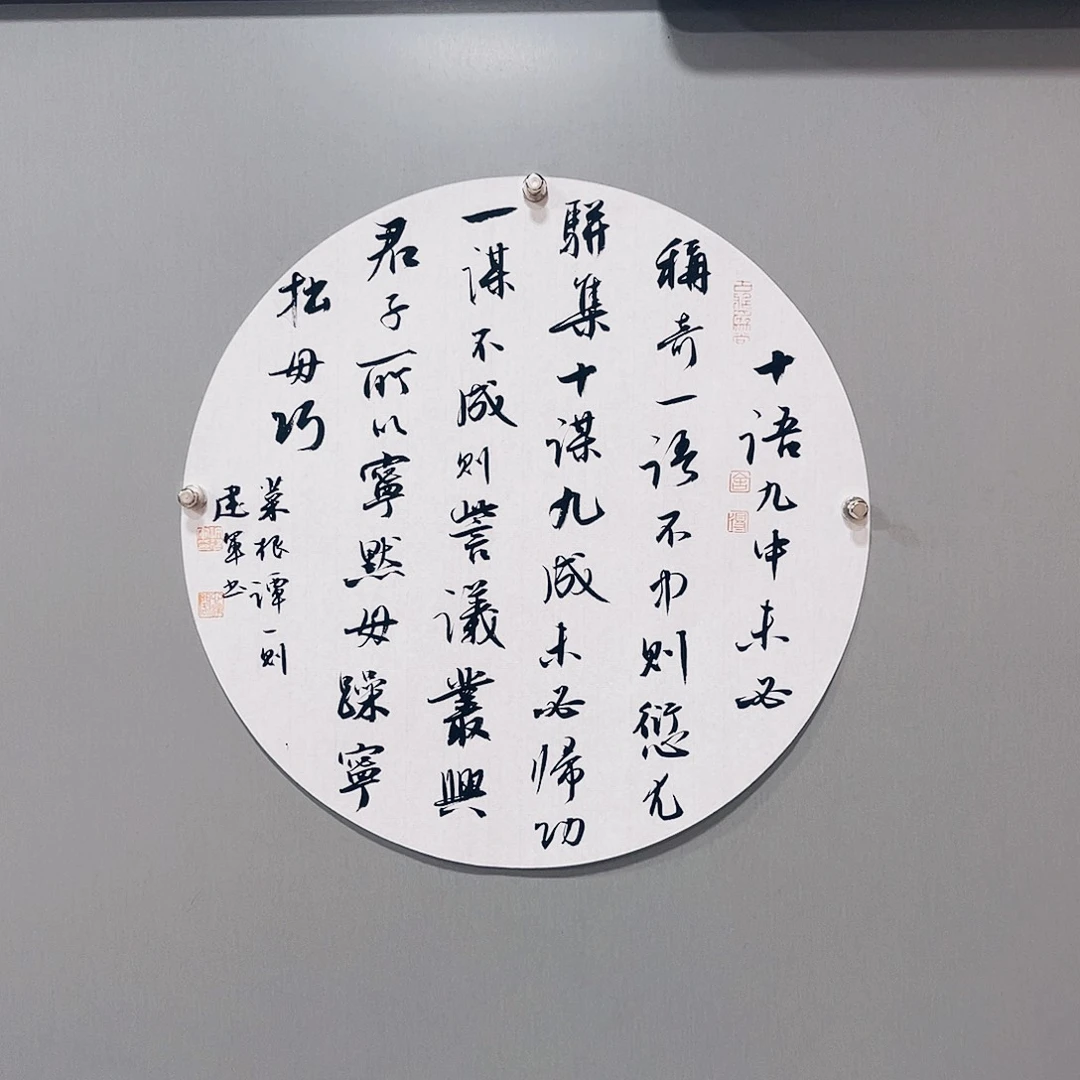 十語九中未必
稱奇一語不中則愆尤
駢集十謀九成未必歸功
一謀不成則訾議叢興
君子所以寧默毋躁寧
拙毋巧
菜根譚一則
建軍書
舍
得